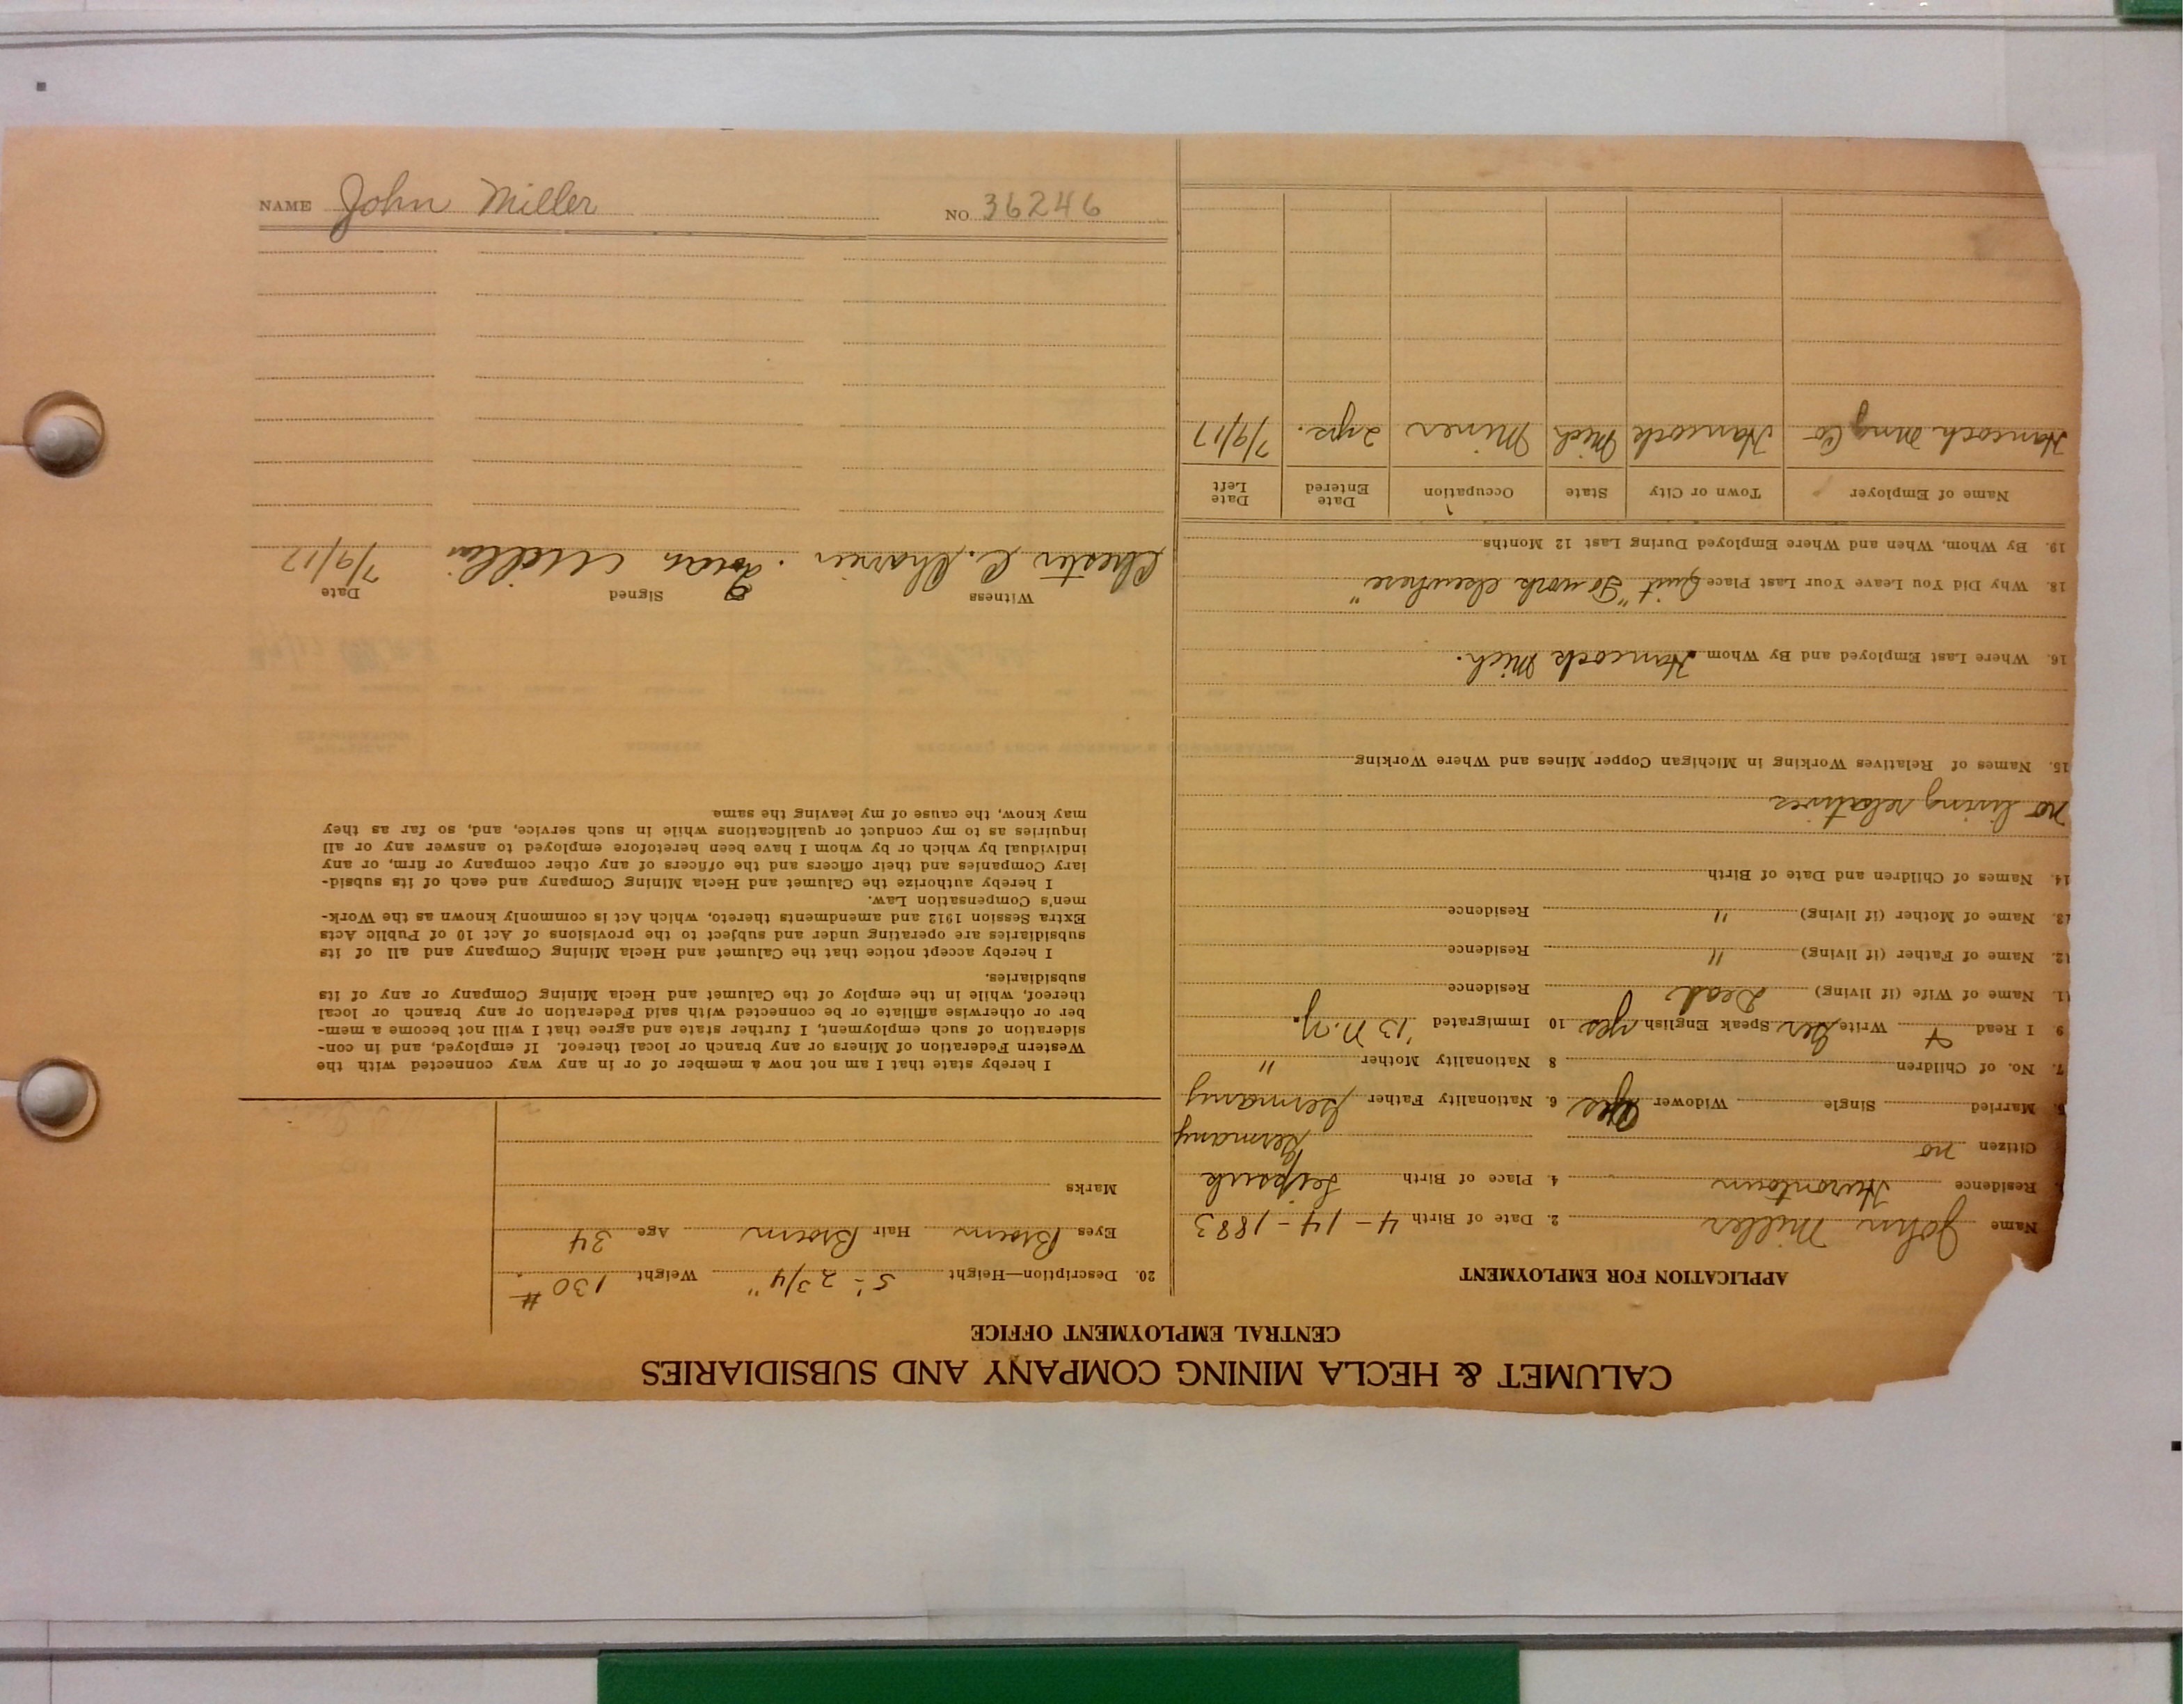 CALUMET & HECLA MINING COMPANY AND SUBSIDIARIES
CENTRAL EMPLOYMENT OFFICE
APPLICATION FOR EMPLOYMENT
Name John Miller 2. Date of Birth 4-14-1883
Residence Hurontown 4. Place of Birth Leipsick
Germany
Citizen no
5. Married Single Widower Yes 6. Nationality Father Germany
7. No. of Children 8 Nationality Mother "
9 I Read Write Ger Speak English yes 10 Immigrated '13 N.Y.
11. Name of Wife (if living) Dead Residence
12. Name of Father (if living) " Residence
13. Name of Mother (if living) " Residence
14. Names of Children and Date of Birth
no living relatives
15. Names of Relatives Working in Michigan Copper Mines and Where Working
16. Where Last Employed and By Whom Hancock Mich.
18. Why Did You Leave Your Last Place Quit "To work elsewhere"
19. By Whom, When and Where Employed During Last 12 Months
Name of Employer Town or City State Occupation Date Entered Date Left
Hancock Mng Co Hancock Mich Miner 2 yrs. 7/9/17
20. Description—Height 5'-2 3/4" Weight 130 #
Eyes Brown Hair Brown Age 34
Marks
I hereby state that I am not now a member of or in any way connected with the
Western Federation of Miners or any branch or local thereof. If employed, and in con-
sideration of such employment, I further state and agree that I will not become a mem-
ber or otherwise affiliate or be connected with said Federation or any branch or local
thereof, while in the employ of the Calumet and Hecla Mining Company or any of its
subsidiaries.
I hereby accept notice that the Calumet and Hecla Mining Company and all of its
subsidiaries are operating under and subject to the provisions of Act 10 of Public Acts
Extra Session 1912 and amendments thereto, which Act is commonly known as the Work-
men's Compensation Law.
I hereby authorize the Calumet and Hecla Mining Company and each of its subsid-
iary Companies and their officers and the officers of any other company or firm, or any
individual by which or by whom I have been heretofore employed to answer any or all
inquiries as to my conduct or qualifications while in such service, and, so far as they
may know, the cause of my leaving the same.
Witness Signed Date
Chester C. 7/9/17
NAME John Miller NO. 36246